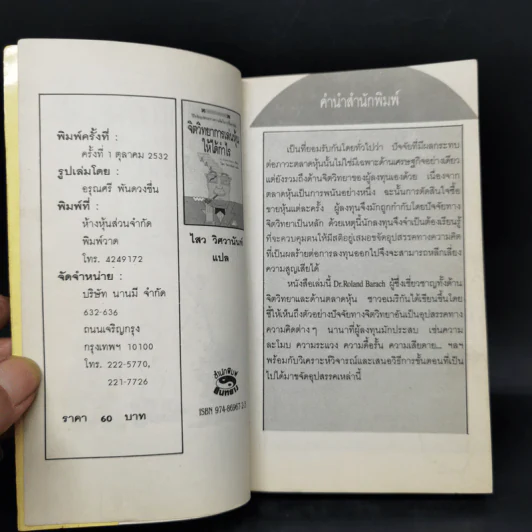 พิมพ์ครั้งที่ :
ครั้งที่ 1 ตุลาคม 2532
รูปเล่มโดย :
อรุณศรี พันดวงชื่น
พิมพ์ที่ :
ห้างหุ้นส่วนจำกัด
พิมพ์วาด
โทร. 4249172
จัดจำหน่าย :
บริษัท นานมี จำกัด
632-636
ถนนเจริญกรุง
กรุงเทพฯ 10100
โทร. 222-5770,
221-7726
ราคา 60 บาท
จิตวิทยาการเล่นหุ้น
ให้ได้กำไร
ไสว วิศวานันท์
แปล
ISBN 974-86967
คำนำสำนักพิมพ์
เป็นที่ยอมรับกันโดยทั่วไปว่า ปัจจัยที่มีผลกระทบ
ต่อภาวะตลาดหุ้นนั้นไม่ใช่มีเฉพาะด้านเศรษฐกิจอย่างเดียว
แต่ยังรวมถึงด้านจิตวิทยาของผู้ลงทุนเองด้วย เนื่องจาก
ตลาดหุ้นเป็นการพนันอย่างหนึ่ง ฉะนั้นการตัดสินใจซื้อ
ขายหุ้นแต่ละครั้ง ผู้ลงทุนจึงมักถูกกำกับโดยปัจจัยทาง
จิตวิทยาเป็นหลัก ด้วยเหตุนี้นักลงทุนจึงจำเป็นต้องเรียนรู้
ที่จะควบคุมตนให้มีสติอยู่เสมอขจัดอุปสรรคทางความคิด
ที่เป็นผลร้ายต่อการลงทุนออกไปจึงจะสามารถหลีกเลี่ยง
ความสูญเสียได้
หนังสือเล่มนี้ Dr.Roland Barach ผู้ซึ่งเชี่ยวชาญทั้งด้าน
จิตวิทยาและด้านตลาดหุ้น ชาวอเมริกันได้เขียนขึ้นโดย
ชี้ให้เห็นถึงตัวอย่างปัจจัยทางจิตวิทยาอันเป็นอุปสรรคทาง
ความคิดต่างๆ นานาที่ผู้ลงทุนมักประสบ เช่นความ
ละโมบ ความระแวง ความดื้อรั้น ความเสียดาย... ฯลฯ
พร้อมกับวิเคราะห์วิจารณ์และเสนอวิธีการขั้นตอนที่เป็น
ไปได้มาขจัดอุปสรรคเหล่านี้